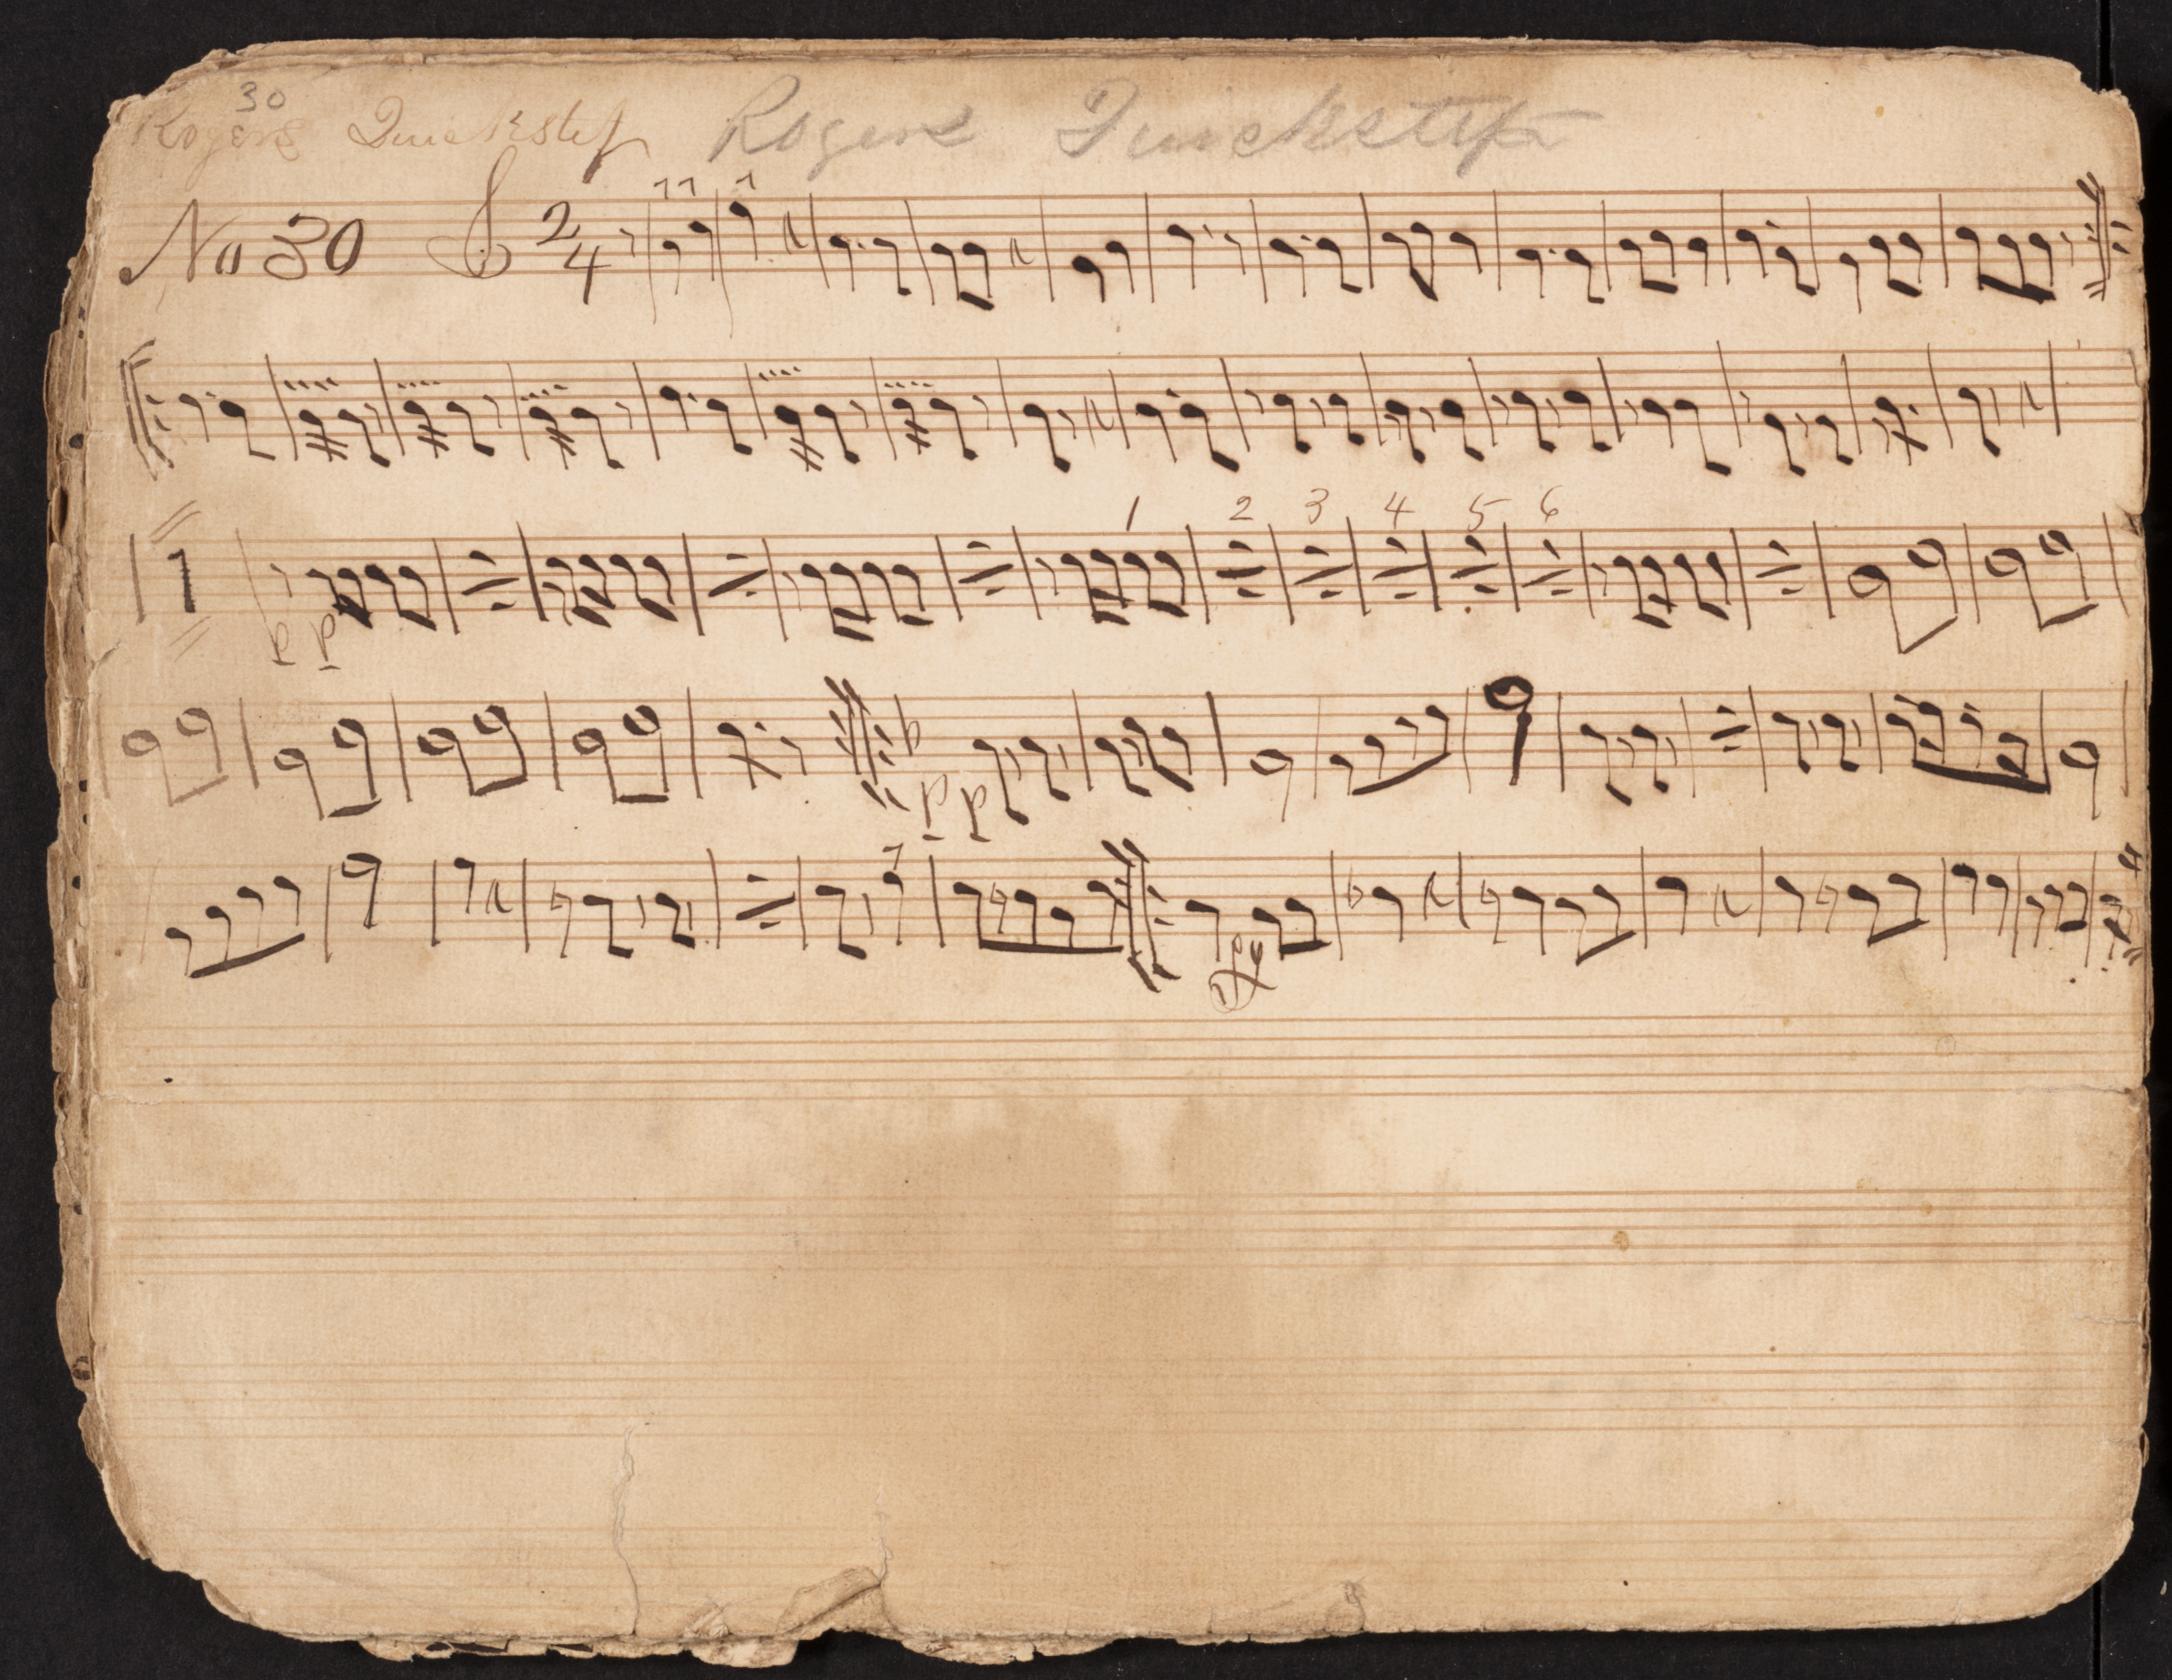 30
Rogers Quickstep Rogers Quickstep
No 30 2/4
1 2 3 4 5 6
1